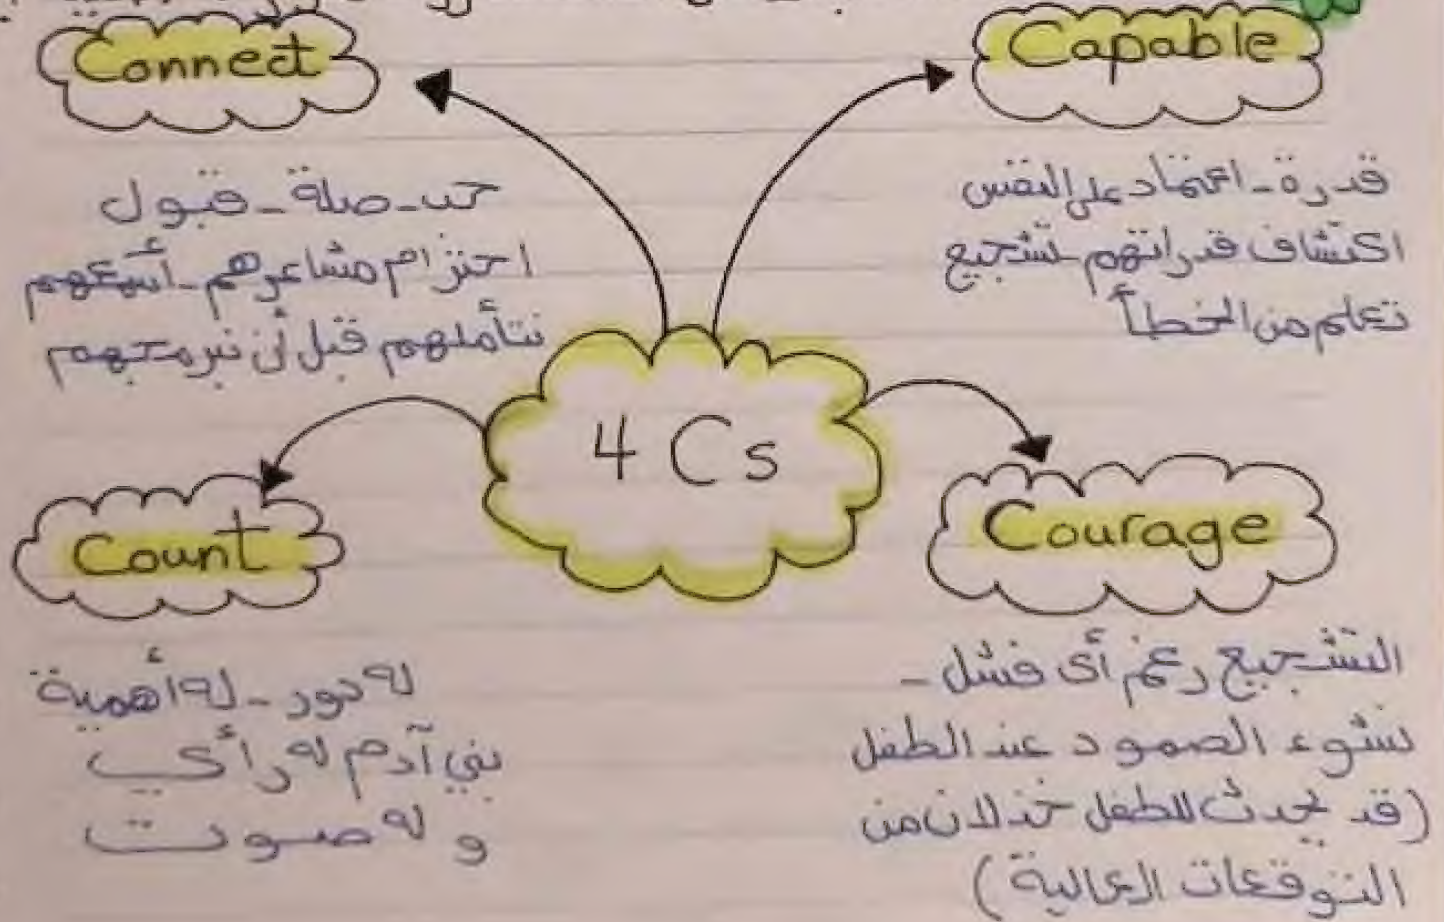 Connect
حب - صلة - قبول
احترام مشاعرهم - أسمعهم
نتأملهم قبل أن نبرمجهم
Capable
قدرة - اعتماد على النفس
اكتشاف قدراتهم - تشجيع
تعلم من الخطأ
4 Cs
Count
له دور - له أهمية
بني آدم له رأي
و له صوت
Courage
التشجيع رغم أى فشل -
نشوء الصمود عند الطفل
(قد يحدث للطفل خذلان من
التوقعات العالية)